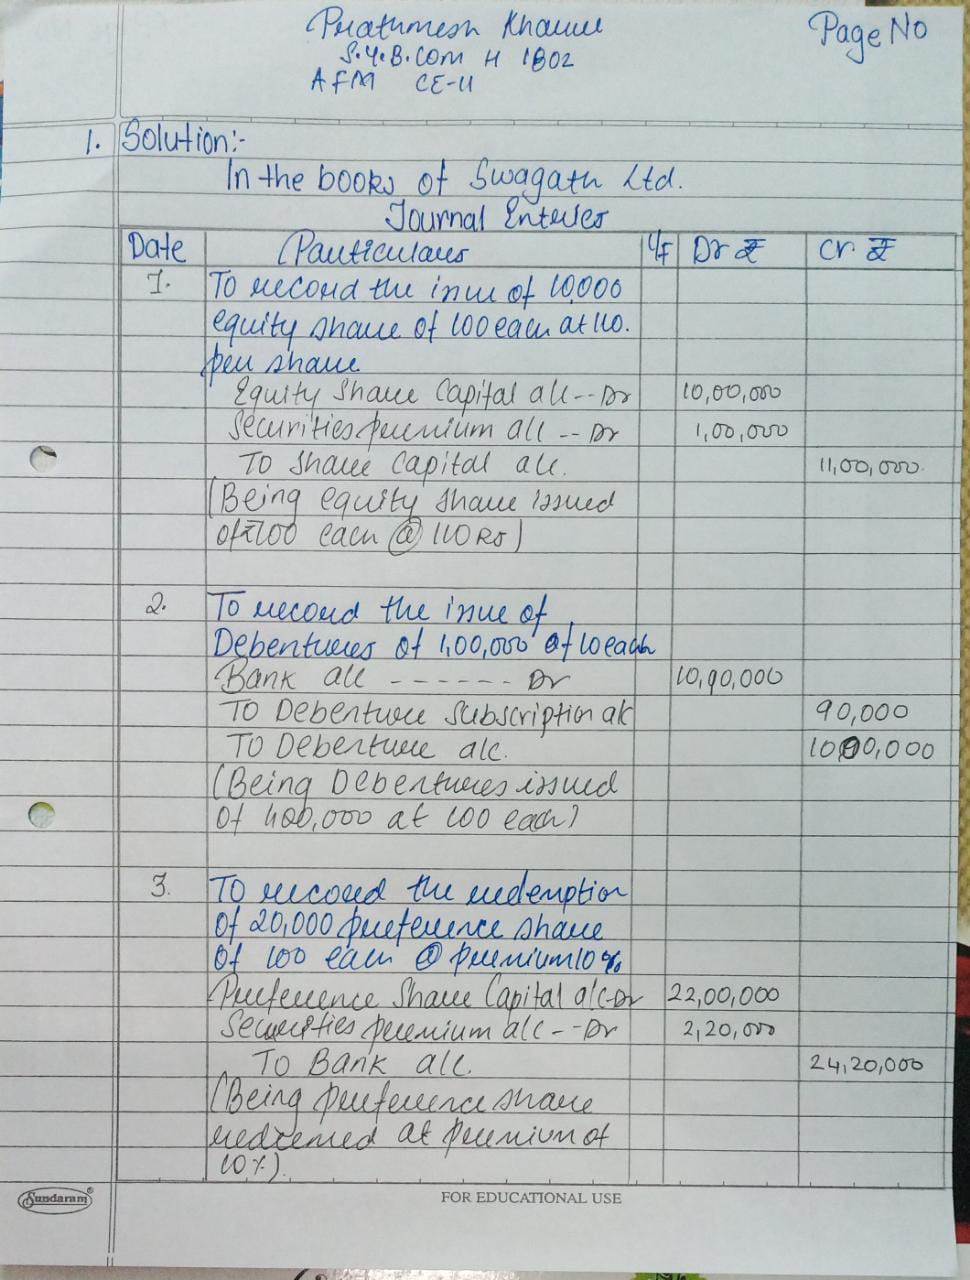 Prathmesh Khaire
Page No
S.Y.B.COM H 1802
AFM CE-II
1. Solution:-
In the books of Swagath Ltd.
Journal Enteries
Date Particulars L/F Dr ₹ Cr ₹
1. To record the issue of 10,000
equity share of 100 each at 110.
per share
Equity Share Capital a/c -- Dr 10,00,000
Securities premium a/c -- Dr 1,00,000
To Share Capital a/c. 11,00,000.
(Being equity share issued
of ₹100 each @ 110 Rs)
2. To record the issue of
Debentures of 1,00,000 of 10 each
Bank a/c ------ Dr 10,90,000
To Debenture Subscription a/c 90,000
To Debenture a/c. 1000,000
(Being Debentures issued
of 100,000 at 100 each)
3. To record the redemption
of 20,000 preference share
of 100 each @ premium 10%
Preference Share Capital a/c-Dr 22,00,000
Securities premium a/c -- Dr 2,20,000
To Bank a/c. 24,20,000
(Being preference share
redeemed at premium of
10%).
Sundaram®
FOR EDUCATIONAL USE